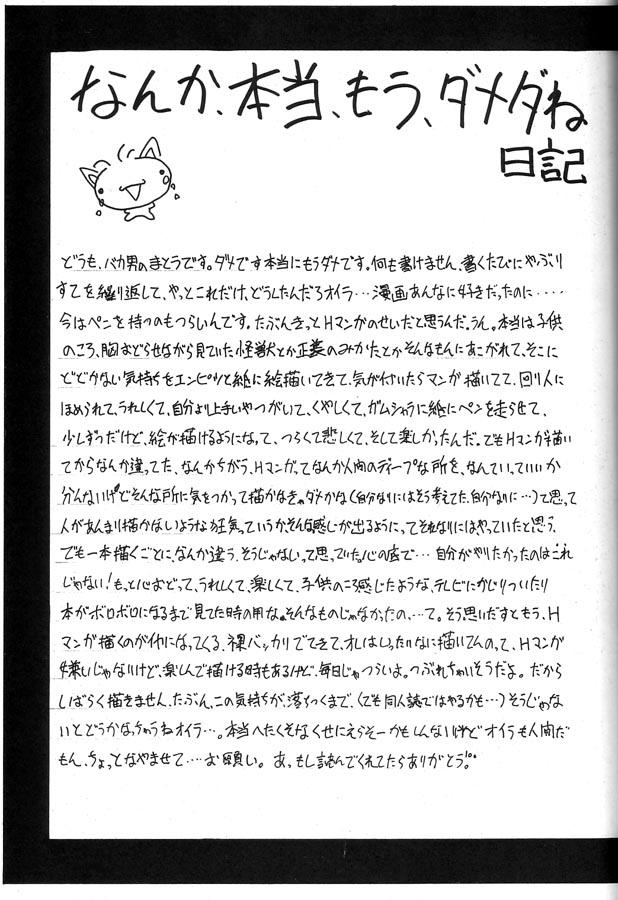 なんか、本当、もう、ダメダね
日記
どうも、バカ男のまとうです。ダメです本当にもうダメです。何も書けません、書くたびにやぶり
すてを繰り返して、やっとこれだけ、どうしたんだろオイラ…漫画あんなに好きだったのに‥‥
今はペンを持つのもつらいんです。たぶんきっとHマンガのせいだと思うんだ。うん。本当は子供
のころ、胸おどらせながら見ていた怪獣とか正義のみかたとかそんなもんにあこがれて、そこに
とどかない気持ちをエンピツと紙に絵描いてきて、気が付いたらマンガ描いてて、回り人に
ほめられて、うれしくて、自分より上手いやつがいて、くやしくて、ガムシャラに紙にペンを走らせて、
少しずつだけど、絵が描けるようになって、つらくて悲しくて、そして楽しかったんだ。でもHマンガ描い
てからなんか違ってた、なんかちがう、Hマンガってなんか人間のディープな所を、なんていっていいか
分んないけどそんな所に気をつかって描かなきゃダメかな(自分なりにはそう考えてた、自分なりに…)て思って
人があんまり描かないような狂気っていうか、そんな感じが出るようにってそれなりにはやっていたと思う、
でも一本描くごとに、なんか違う、そうじゃないって思っていた。心の底で…自分がやりたかったのはこれ
じゃない!もっと心おどって、うれしくて、楽しくて、子供のころ感じたような、テレビにかじりついたり
本がボロボロになるまで見てた時の用な。そんなものじゃなかったの、…て。そう思いだすともう、H
マンガ描くのがイヤになってくる、裸バッカリでてきて、オレはいったいなに描いてんのって、Hマンガ
嫌いじゃないけど、楽しんで描ける時もあるけど、毎日じゃつらいよ。つぶれちゃいそうだよ。だから
しばらく描きません、たぶん、この気持ちが、落ちつくまで、(でも同人誌ではやるかも…)そうじゃな
いとどうかなっちゃうねオイラ…。本当へたくそなくせにえらそーかもしんないけどオイラも人間だ
もん、ちょっとなやませて…お願い。あ、もし読んでくれてたらありがとう!。